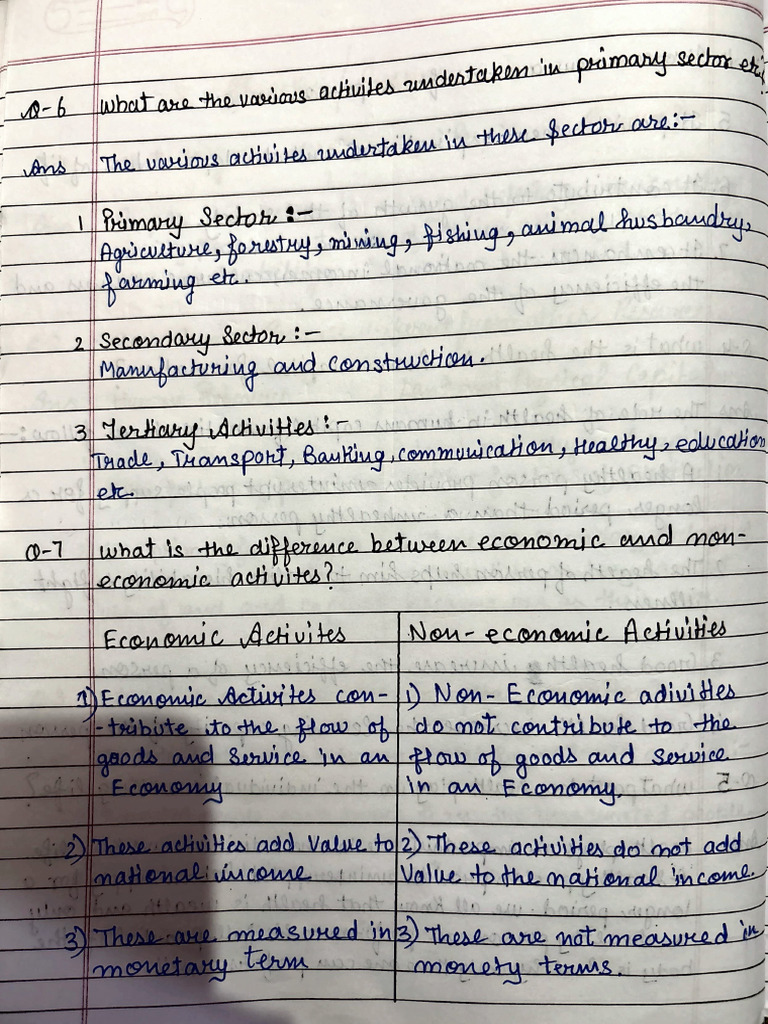 Q-6 What are the various activites undertaken in primary sector etc.
Ans The various activites undertaken in these Sector are:-
1 Primary Sector :-
Agriculture, forestry, mining, fishing, animal husbandry,
farming etc.
2 Secondary Sector :-
Manufacturing and construction.
3 Tertiary Activities :-
Trade, Transport, Banking, communication, Healthy, education
etc.
Q-7 What is the difference between economic and non-
economic activites?
Economic Activites
1) Economic Activites con-
-tribute to the flow of
goods and Service in an
Economy
2) These activities add Value to
national income
3) These are measured in
monetary term
Non-economic Activities
1) Non-Economic adivities
do not contribute to the
flow of goods and service
in an Economy.
2) These activities do not add
Value to the national income.
3) These are not measured in
monety terms.